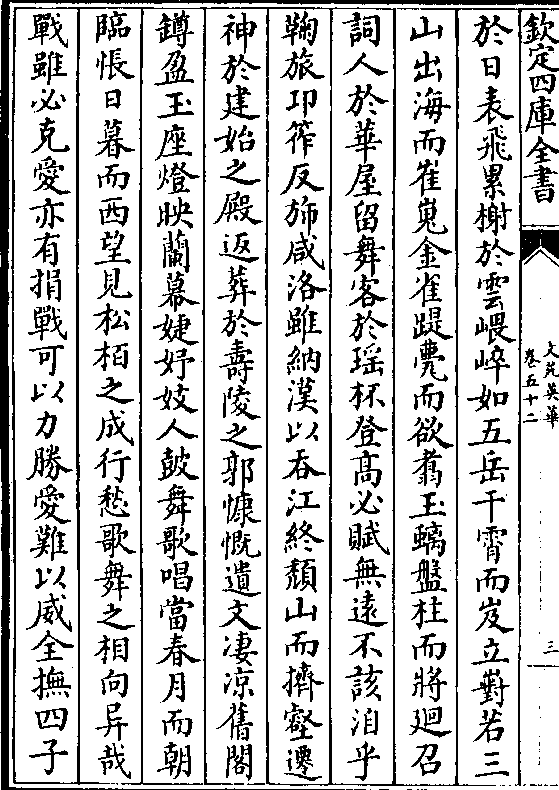 欽定四庫全書
文苑英華
卷五十二
三
於日表飛累榭於雲嵔崪如五岳干霄而岌立對若三
山出海而崔嵬金雀踶甍而欲翥玉螭盤柱而將廻召
詞人於華屋留舞客於瑶杯登髙必賦無遠不該洎乎
鞠旅卭筰反斾咸洛雖納漢以吞江終頽山而擠壑遷
神於建始之殿返葬於壽陵之郭慷慨遺文凄凉舊閣
鐏盈玉座燈映蘭幕婕妤妓人鼓舞歌唱當春月而朝
臨悵日暮而西望見松栢之成行愁歌舞之相向异哉
戰雖必克愛亦有捐戰可以力勝愛難以威全撫四子